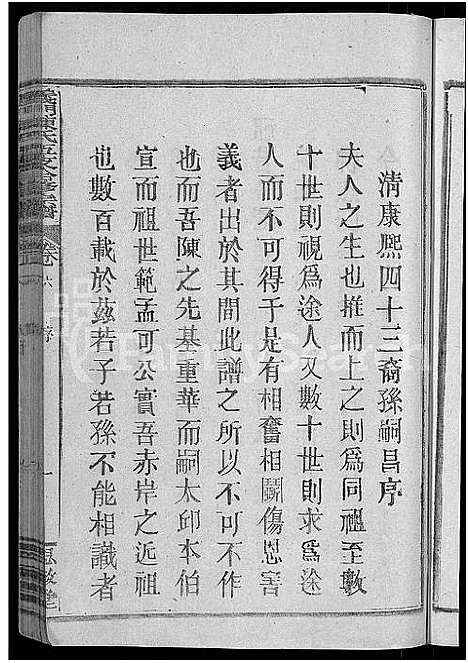 清康熙四十三裔孫嗣昌序
夫人之生也推而上之則爲同祖至數
十世則視爲途人又數十世則求爲途
人而不可得于是有相奮相鬭傷恩害
義者出於其間此譜之所以不可不作
也而吾陳之先基重華而嗣太卽本伯
宣而祖世範孟可公實吾赤岸之近祖
也數百載於茲若子若孫不能相識者
義門陳氏 譜
卷 六
序
一
FamilySearch